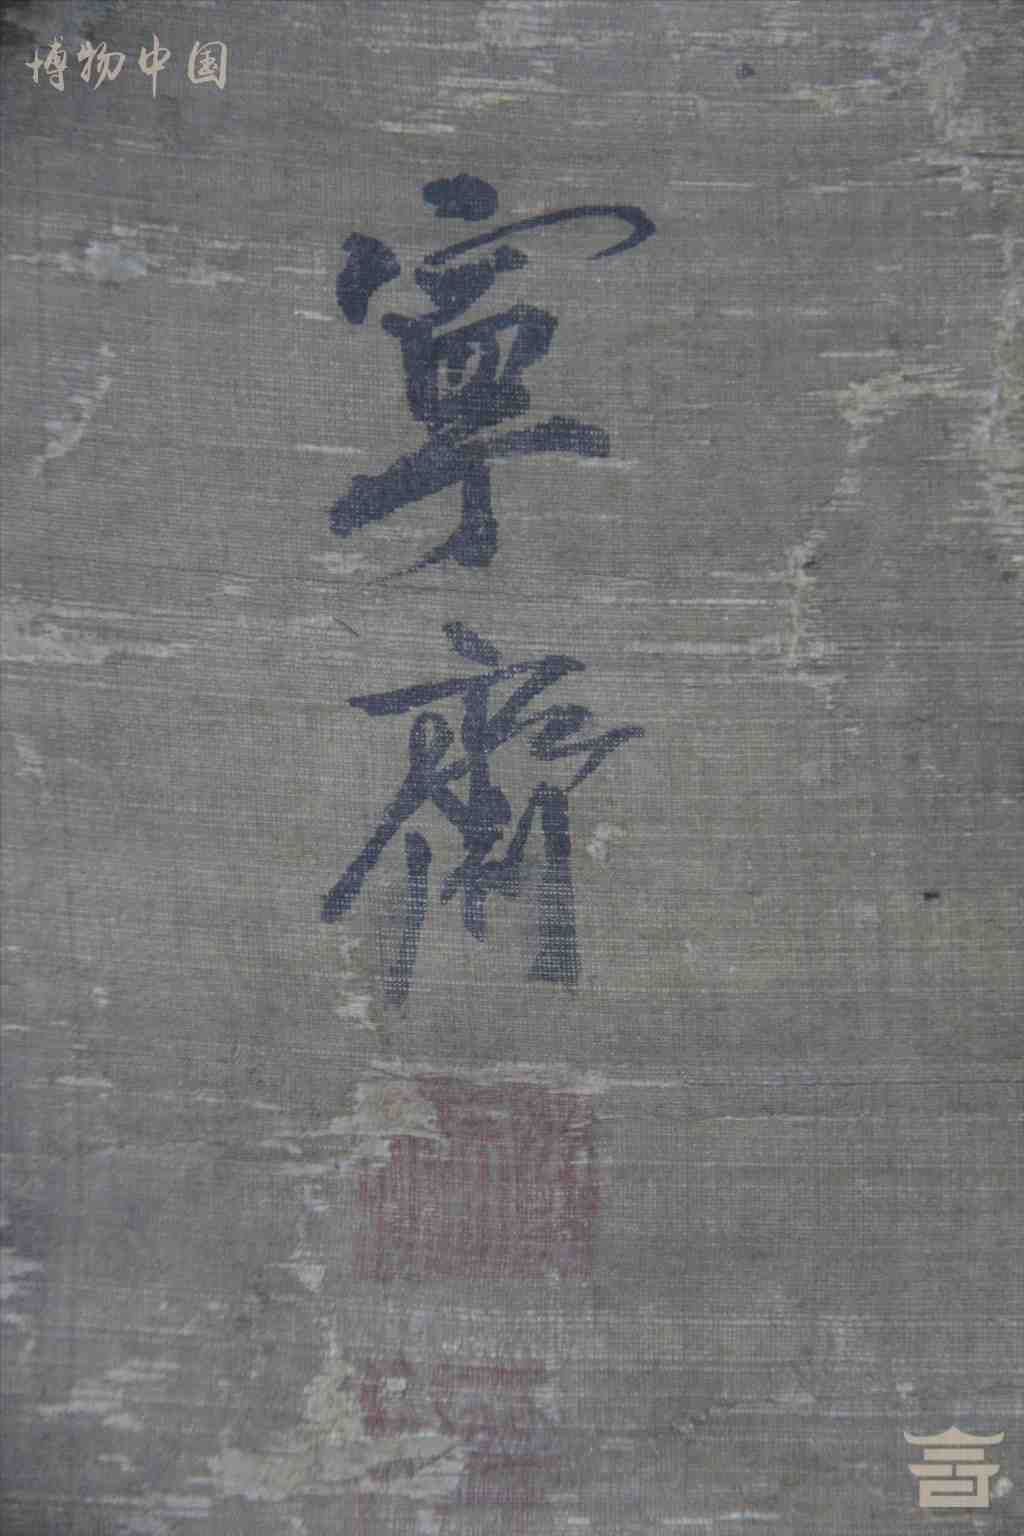 博物中国
寧齋